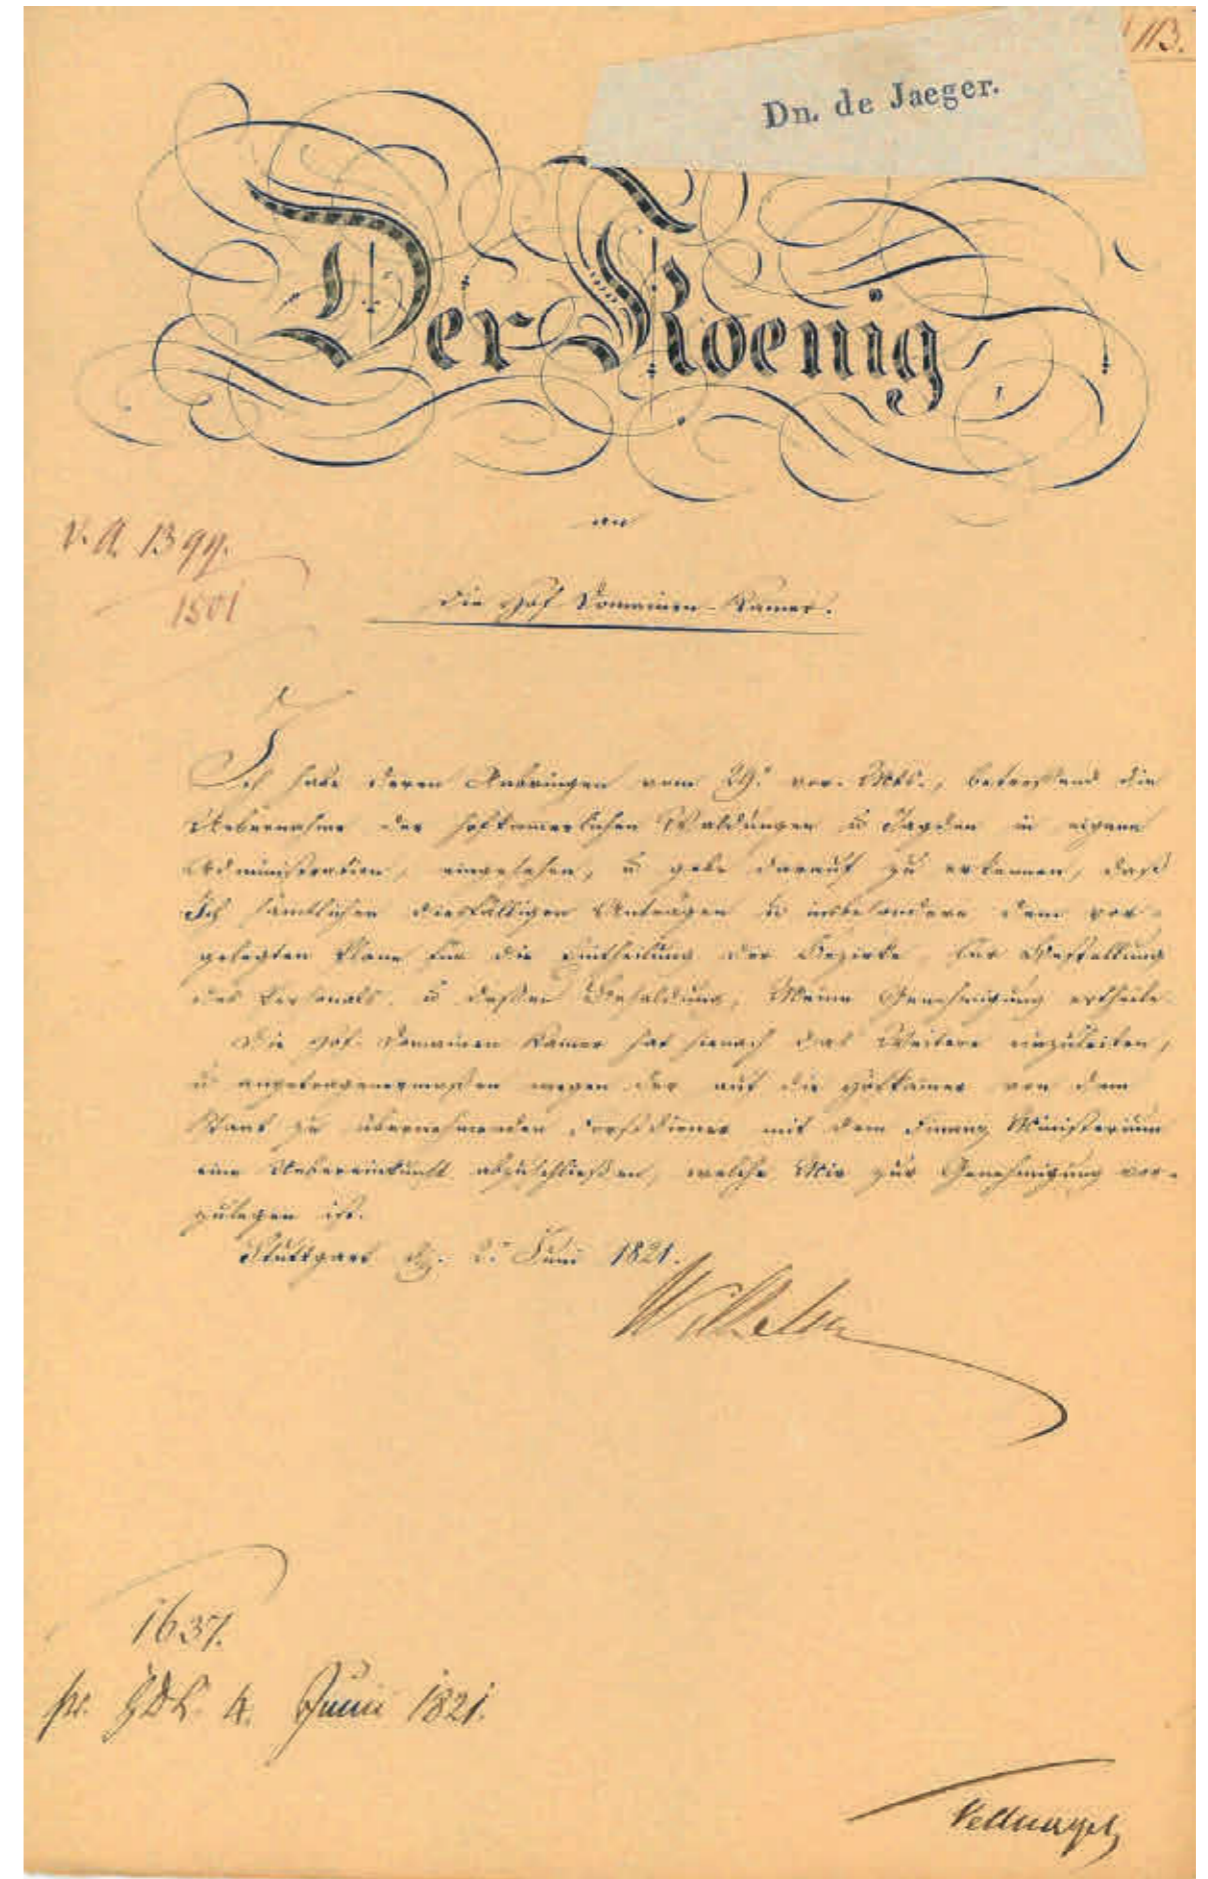 113.
Dn. de Jaeger.
Der Koenig
an
V. A. 1399.
1501
die Hof Domainen-Kamer.
Ich habe deren Anbringen vom 29.ⁿ vor. Mts., betreffend die
Uebernahme der hofkamerlichen Waldungen u. Jagden in eigene
Administration, eingesehen, u. gebe darauf zu erkennen, daß
Ich sämtlichen diesfälligen Anträgen u. insbesondere dem vor-
gelegten Plane für die Eintheilung der Bezirke, für Bestellung
des Personals, u. deßen Besoldung, Meine Genehmigung ertheile.
Die Hof Domainen Kamer hat hienach das Weitere einzuleiten,
u. angetragenermaßen wegen der auf die Hofkamer von dem
Staat zu übernehmenden Forstdiener mit dem Finanz Ministerium
eine Uebereinkunft abzuschließen, welche Mir zur Genehmigung vor-
zulegen ist.
Stuttgart d. 2.ⁿ Juni 1821.
Wilhelm
1637.
pr. HDK. 4. Juni 1821.
Vellnagel